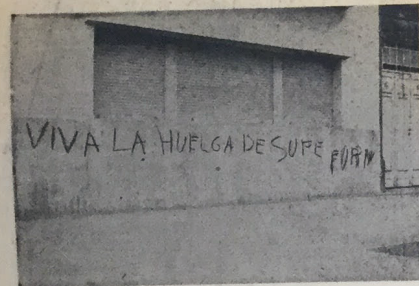 VIVA LA HUELGA DE SUPE